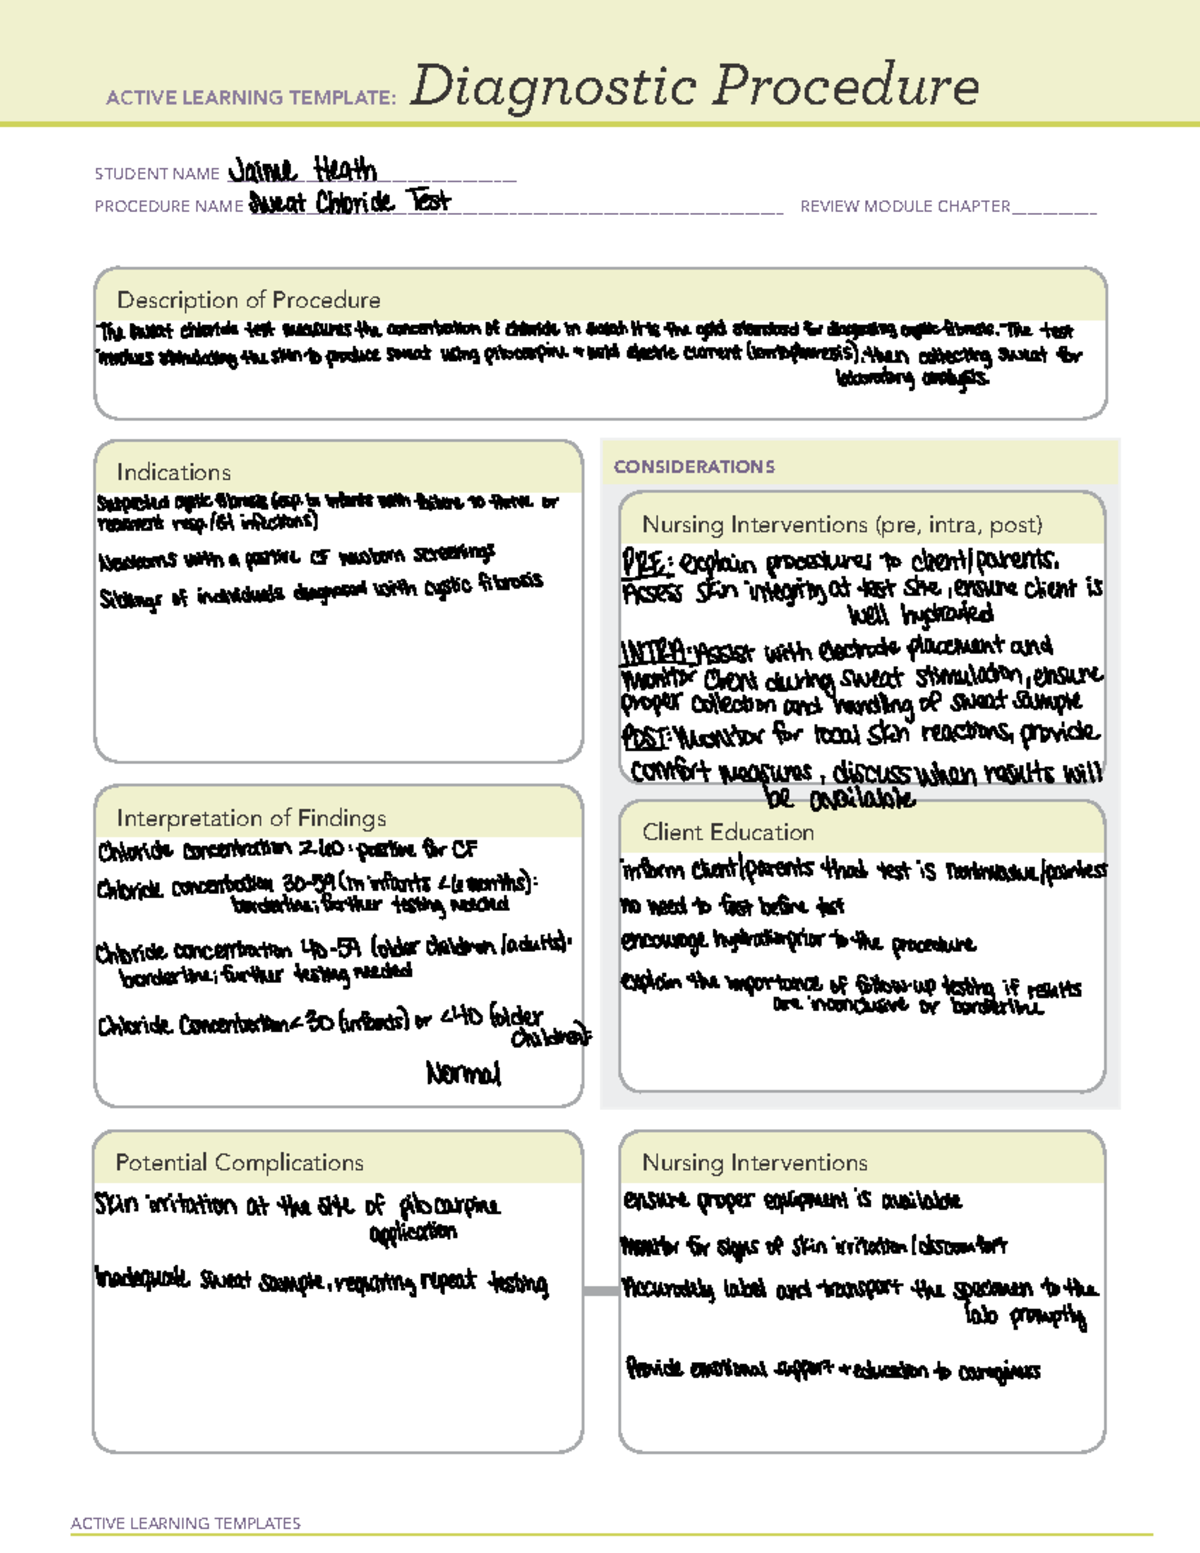 ACTIVE LEARNING TEMPLATE: Diagnostic Procedure
STUDENT NAME Jaime Heath
PROCEDURE NAME Sweat Chloride Test REVIEW MODULE CHAPTER
Description of Procedure
The sweat chloride test measures the concentration of chloride in sweat. It is the gold standard for diagnosing cystic fibrosis. The test
involves stimulating the skin to produce sweat using pilocarpine + mild electric current (iontophoresis), then collecting sweat for
laboratory analysis.
Indications
Suspected cystic fibrosis (esp. in infants with failure to thrive or
recurrent resp./GI infections)
Newborns with a positive CF newborn screenings
Siblings of individuals diagnosed with cystic fibrosis
CONSIDERATIONS
Nursing Interventions (pre, intra, post)
PRE: explain procedures to client/parents.
Assess skin integrity at test site, ensure client is
well hydrated
INTRA: Assist with electrode placement and
monitor client during sweat stimulation, ensure
proper collection and handling of sweat sample
POST: Monitor for local skin reactions, provide
comfort measures, discuss when results will
be available
Interpretation of Findings
Chloride concentration ≥60: positive for CF
Chloride concentration 30-59 (in infants <6 months):
borderline; further testing needed
Chloride concentration 40-59 (older children/adults):
borderline; further testing needed
Chloride Concentration <30 (infants) or <40 (older
children):
Normal
Client Education
inform client/parents that test is noninvasive/painless
no need to fast before test
encourage hydration prior to the procedure
explain the importance of follow-up testing if results
are inconclusive or borderline
Potential Complications
Skin irritation at the site of pilocarpine
application
Inadequate sweat sample, requiring repeat testing
Nursing Interventions
ensure proper equipment is available
Monitor for signs of skin irritation/discomfort
Accurately label and transport the specimen to the
lab promptly
Provide emotional support + education to caregivers
ACTIVE LEARNING TEMPLATES